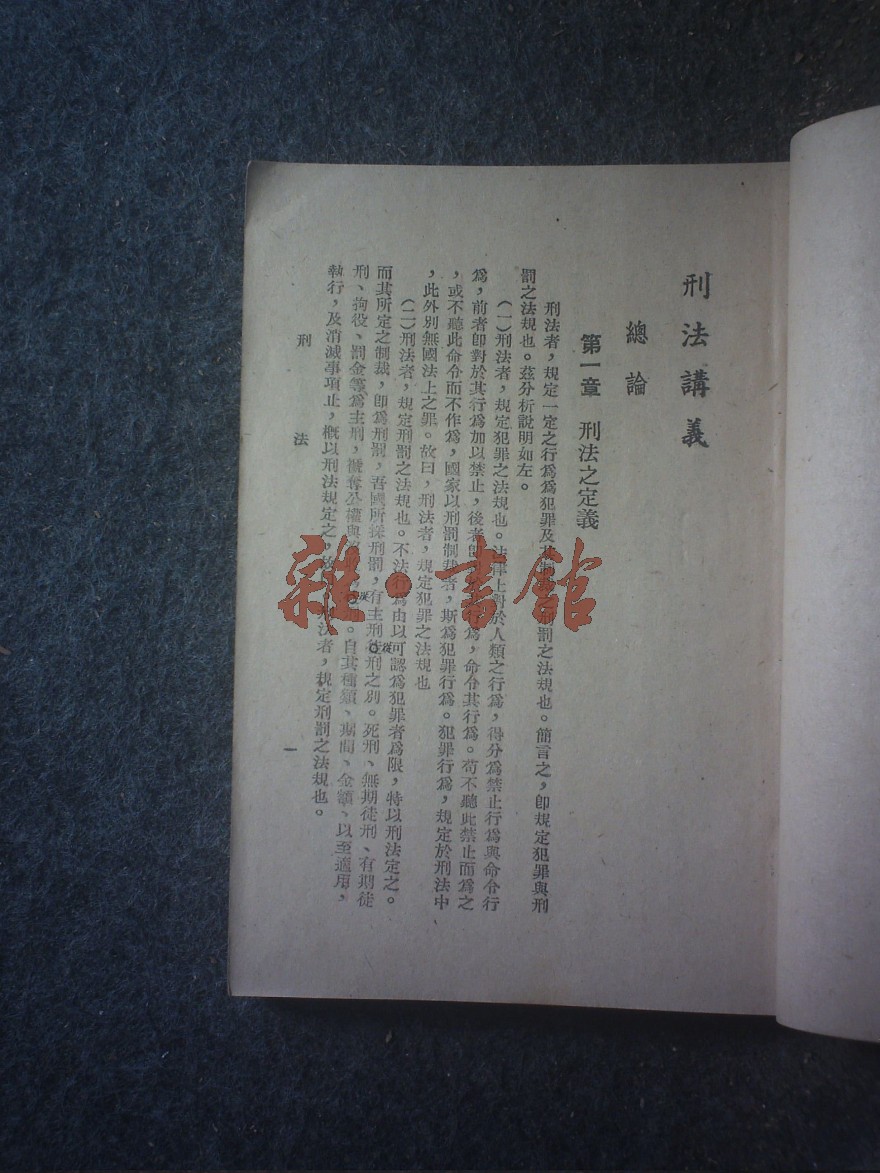 刑法講義
總論
第一章 刑法之定義
刑法者，規定一定之行爲爲犯罪及其刑罰之法規也。簡言之，卽規定犯罪與刑
罰之法規也。茲分析說明如左。
（一）刑法者，規定犯罪之法規也。法律上對於人類之行爲，得分爲禁止行爲與命令行
爲，前者卽對於其行爲加以禁止，後者卽爲，命令其行爲。苟不聽此禁止而爲之
，或不聽此命令而不作爲，國家以刑罰制裁者，斯爲犯罪行爲。犯罪行爲，規定於刑法中
，此外別無國法上之罪。故曰，刑法者，規定犯罪之法規也
（二）刑法者，規定刑罰之法規也。不法行爲由以可認爲犯罪者爲限，特以刑法定之。
而其所定之制裁，卽爲刑罰，吾國所採刑罰，有主刑從刑之別。死刑、無期徒刑、有期徒
刑、拘役、罰金等爲主刑，褫奪公權與。自其種類、期間、金額、以至適用，
執行，及消滅事項止，槪以刑法規定之，故法者，規定刑罰之法規也。
刑法
一
雜·書館